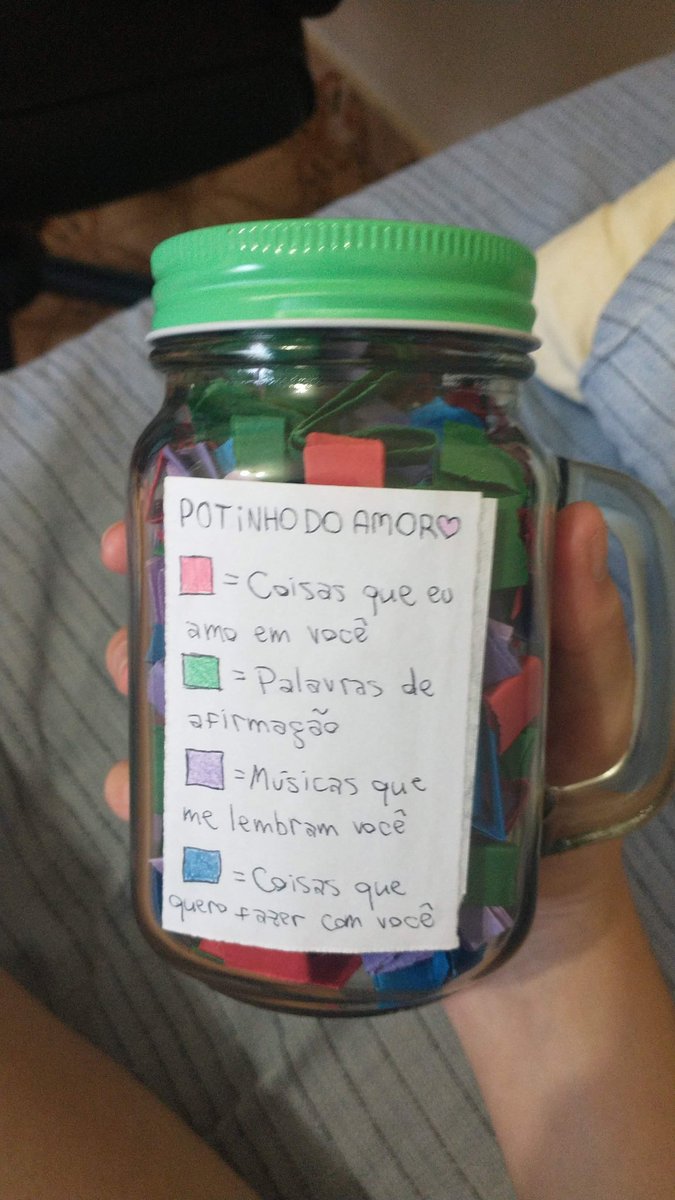 POTINHO DO AMOR
= Coisas que eu
amo em você
= Palavras de
afirmação
= Músicas que
me lembram você
= Coisas que
quero fazer com você